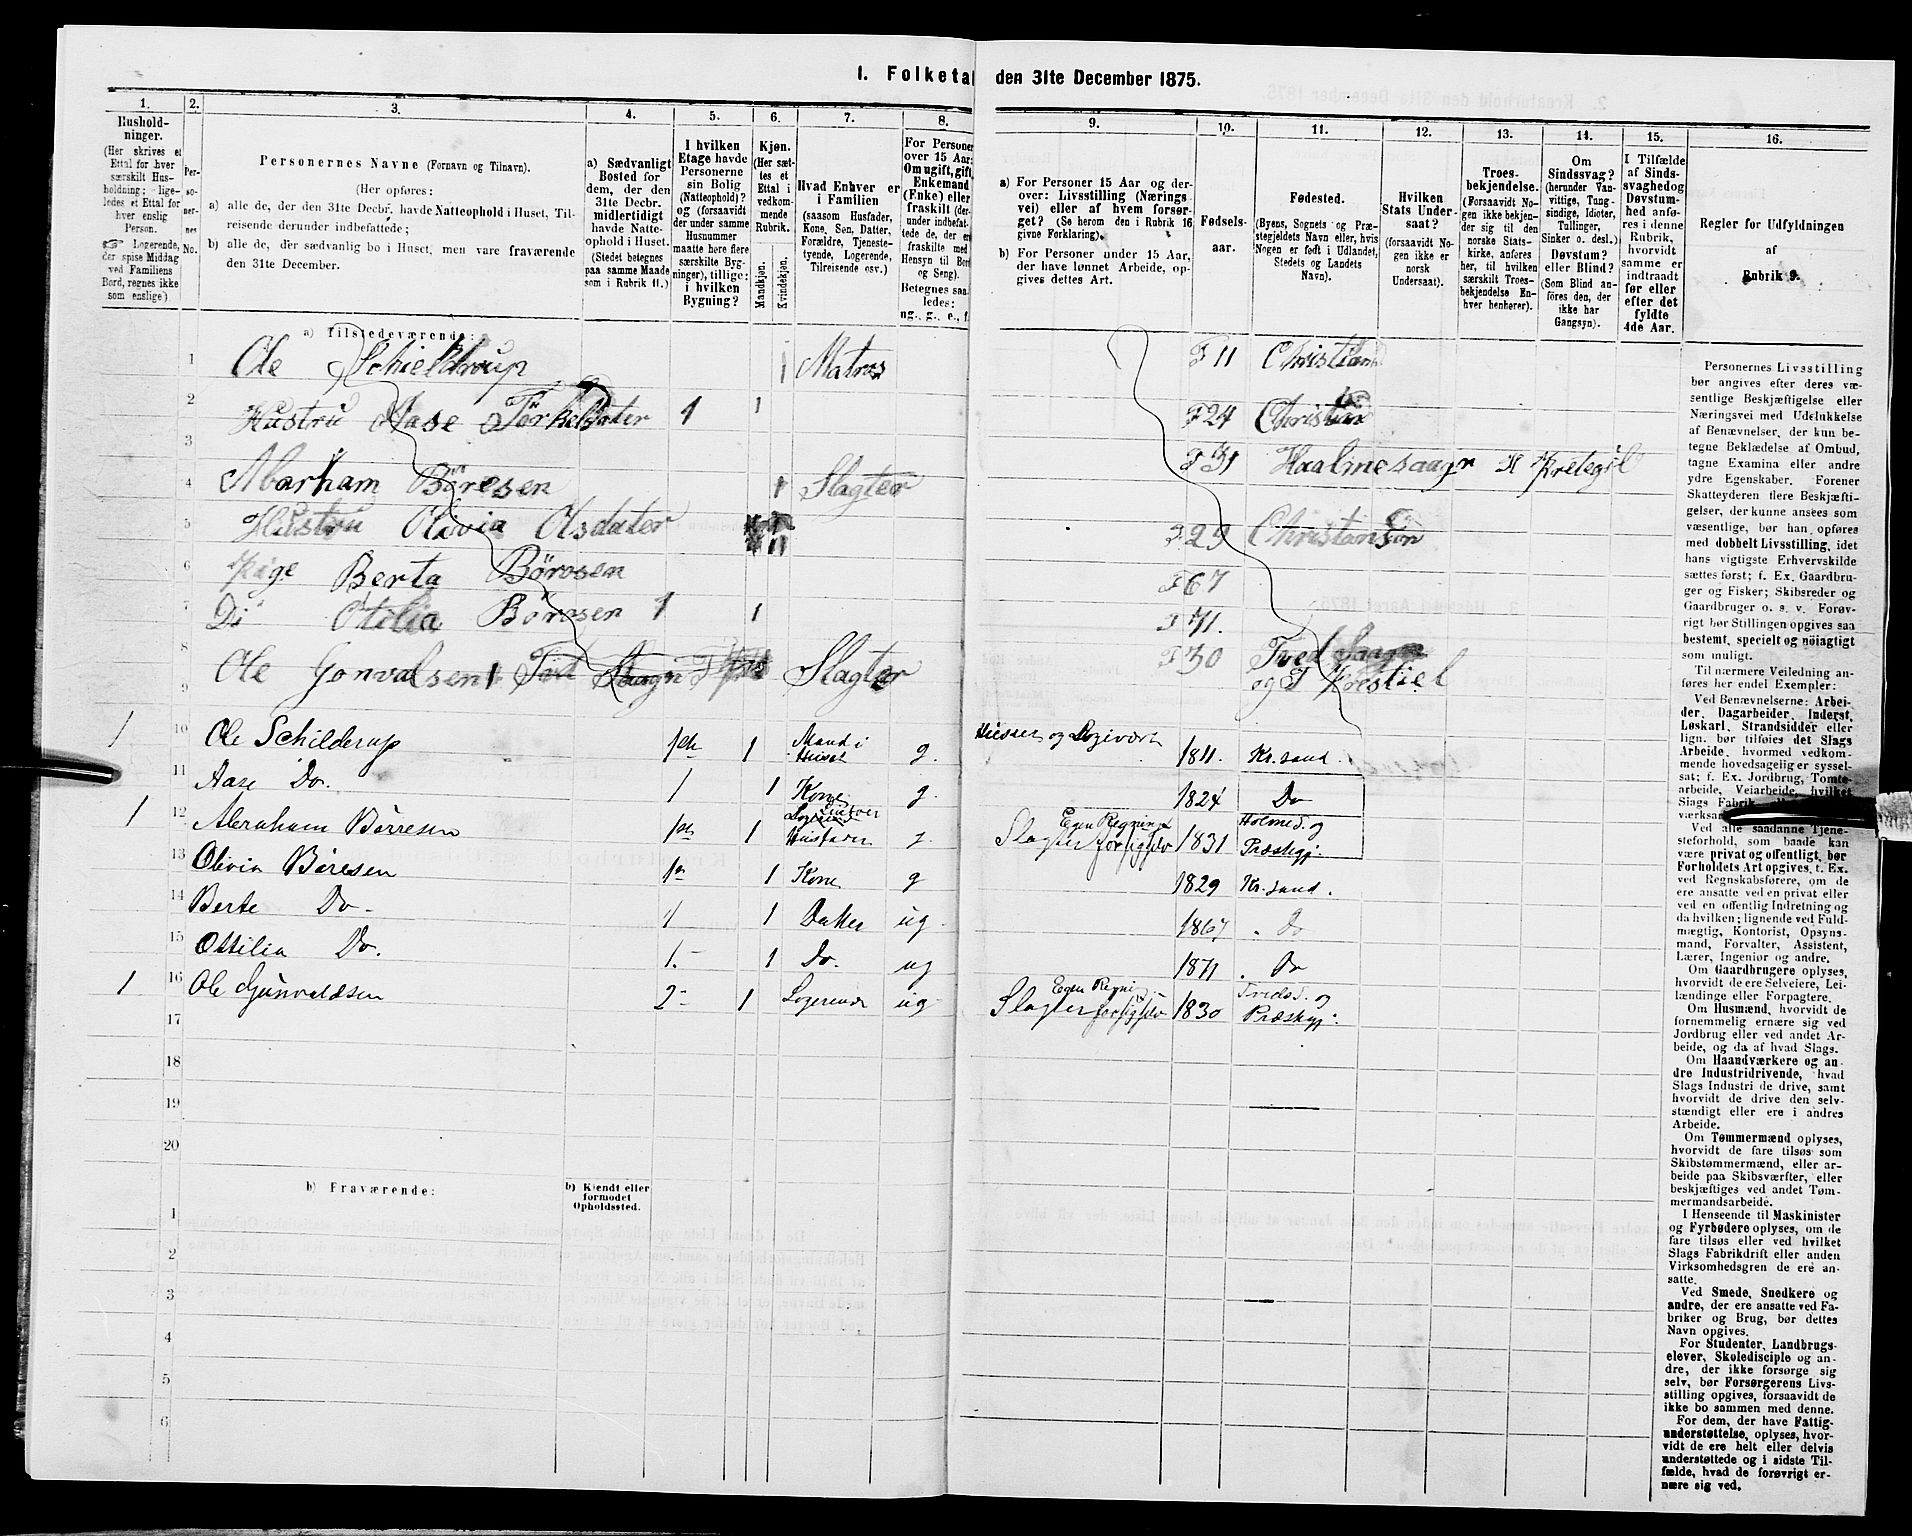 I. Folketal den 31te December 1875.
1. 2. 3. 4. 5. 6. 7. 8. 9. 10. 11. 12. 13. 14. 15. 16.
Hushold-
ninger.
(Her skrives et
Ettal for hver
særskilt Hus-
holdning; lige-
ledes et Ettal for
hver enslig
Person.
☞ Logerende,
der spise Middag
ved Familiens
Bord, regnes ikke
som enslige).
Per-
so-
ner-
nes
No.
Personernes Navne (Fornavn og Tilnavn).
(Her opføres:
a) alle de, der den 31te Decbr. havde Natteophold i Huset, Til-
reisende derunder indbefattede;
b) alle de, der sædvanlig bo i Huset, men vare fraværende
den 31te December.
a) Sædvanligt
Bosted for
dem, der den
31te Decbr.
midlertidigt
havde Natte-
ophold i Huset.
(Stedet betegnes
paa samme Maade
som i Rubrik 11.)
I hvilken
Etage havde
Personerne
sin Bolig
(Natteophold)?
og (forsaavidt
der under samme
Husnummer
maatte høre flere
særskilte Byg-
ninger), tillige:
i hvilken
Bygning?
Kjøn.
(Her sæt-
tes et
Ettal i
vedkom-
mende
Rubrik.
Mandkjøn.
Kvindekjøn.
Hvad Enhver er
i Familien
(saasom Husfader,
Kone, Søn, Datter,
Forældre, Tjeneste-
tyende, Logerende,
Tilreisende osv.)
For Personer
over 15 Aar:
Om ugift, gift,
Enkemand
(Enke) eller
fraskilt (der-
under indbefat-
tede de, der er
fraskilte med
Hensyn til Bord
og Seng).
Betegnes saa-
ledes:
ug., g., e., f.
a) For Personer 15 Aar og der-
over: Livsstilling (Nærings-
vei) eller af hvem forsør-
get? (Se herom den i Rubrik 16
givne Forklaring).
b) For Personer under 15 Aar,
der have lønnet Arbeide, op-
gives dettes Art.
Fødsels-
aar.
Fødested.
(Byens, Sognets og Præ-
stegjeldets Navn eller, hvis
Nogen er født i Udlandet,
Stedets og Landets
Navn).
Hvilken
Stats Under-
saat?
(forsaavidt No-
gen ikke er
norsk
Undersaat).
Troes-
bekjendelse.
(Forsaavidt No-
gen ikke bekjen-
der sig til den
norske Stats-
kirke, anføres
her, til hvilken
særskilt Troes-
bekjendelse En-
hver henhører).
Om
Sindssvag?
(herunder Van-
vittige, Tung-
sindige, Idioter,
Tullinger,
Sinker o. desl.)
Døvstum?
eller Blind?
(Som Blind an-
føres den, der
ikke har
Gangsyn).
I Tilfælde
af Sinds-
svaghed og
Døvstum-
hed anfø-
res i denne
Rubrik,
hvorvidt
samme er
indtraadt
før eller
efter det
fyldte
4de Aar.
Regler for Udfyldningen
af
Rubrik 9.
a) Tilstedeværende:
1 Ole Schieldrup 1 Matros F 11 Christian
2 Hustru Aase Törkelsdater 1 1 F 24 Christian
3 F 31
4 Abarham Böresen 1 Slagter
5 Hustru Olivia Olsdater F 29 Christansen
6 Pige Berta Börosen F 67
7 Do Otilia Böresen 1 1 F 71.
8 Ole Gonvalsen 1 Slagter F 30 Tved Saagn
9 og
1 10 Ole Schilderup 1ste 1 Mand i Huset g. Huseier og Logivært 1811. Kr.sand.
11 Aase Do. 1 1 Kone g. 1824 Do
1 12 Abraham Börresen 1st 1 Logerende Husfader g. Slagter Egen Regning for sig selv 1831 Holmed. og Præstegj.
13 Olivia Böresen 1st 1 Kone g 1829 Kr.sand.
14 Berte Do. 1 1 Datter ug 1867 " Do
15 Ottilia Do. 1.- 1 Do. ug 1871 . Do
1 16 Ole Gunvaldsen 2- 1 Logerende ug Slagter Egen Regning for sig selv 1830 Tveds. og Præstegj.
17
18
19
20
b) Fraværende:
b) Kjendt eller
formodet
Opholdssted.
1
2
3
4
5
6
Personernes Livsstilling
bør angives efter deres væ-
sentlige Beskjæftigelse eller
Næringsvei med Udelukkelse
af Benævnelser, der kun be-
tegne Beklædelse af Ombud,
tagne Examina eller andre
ydre Egenskaber. Forener
Skatteyderen flere Beskjæfti-
gelser, der kunne ansees som
væsentlige, bør han opføres
med dobbelt Livsstilling, idet
hans vigtigste Erhvervskilde
sættes først; f. Ex. Gaardbru-
ger og Fisker; Skibsreder og
Gaardbruger o. s. v. Forøv-
rigt bør Stillingen opgives saa
bestemt, specielt og nøiagtigt
som muligt.
Til nærmere Veiledning an-
føres her endel Exempler:
Ved Benævnelserne: Arbei-
der, Dagarbeider, Inderst,
Løskarl, Strandsidder eller
lign. bør tilføies det Slags
Arbeide, hvormed vedkom-
mende hovedsagelig er syssel-
sat; f. Ex. Jordbrug, Tomte-
arbeide, Veiarbeide, hvilket
Slags
Ved alle saadanne Tjene-
steforhold, som baade kan
være privat og offentligt, bør
Forholdets Art opgives, t. Ex.
ved Regnskabsførere, om de
ere ansatte ved en privat eller
ved en offentlig Indretning og
da hvilken; lignende ved Fuld-
mægtig, Kontorist, Opsyns-
mand, Forvalter, Assistent,
Lærer, Ingeniør og andre.
Om Gaardbrugere oplyses,
hvorvidt de ere Selveiere, Lei-
lændinge eller Forpagtere.
Om Husmænd, hvorvidt de
fornemmelig ernære sig ved
Jordbrug eller ved andet Ar-
beide, og da af hvad Slags.
Om Haandværkere og an-
dre Industridrivende, hvad
Slags Industri de drive, samt
hvorvidt de drive den selv-
stændigt eller ere i andres
Arbeide.
Om Tømmermænd oplyses,
hvorvidt de fare tilsøs som
Skibstømmermænd, eller ar-
beide paa Skibsværfter, eller
beskjæftiges ved andet Tøm-
mermandsarbeide.
I Henseende til Maskinister
og Fyrbødere oplyses, om de
fare tilsøs eller ved hvilket
Slags Fabrikdrift eller anden
Virksomhedsgren de ere an-
satte.
Ved Smede, Snedkere og
andre, der ere ansatte ved Fa-
briker og Brug, bør dettes
Navn opgives.
For Studenter, Landbrugs-
elever, Skoledisciple og an-
dre, der ikke forsørge sig
selv, bør Forsørgerens Livs-
stilling opgives, forsaavidt de
ikke bo sammen med denne.
For dem, der have Fattig-
understøttelse, oplyses, hvor-
vidt de ere helt eller delvis
understøttede og i sidste Til-
fælde, hvad de forøvrigt er-
nære sig ved.